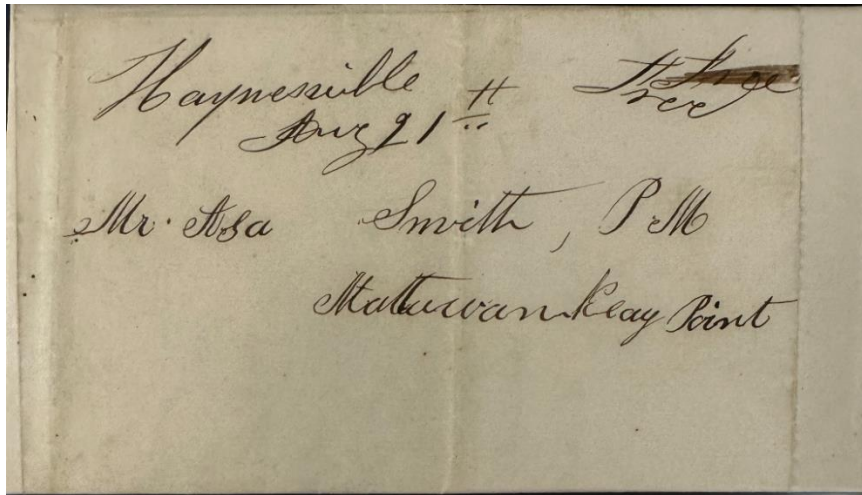 Haynesville Free
Aug 21 tt
Mr. Asa Smith, P M
Mattawamkeag Point